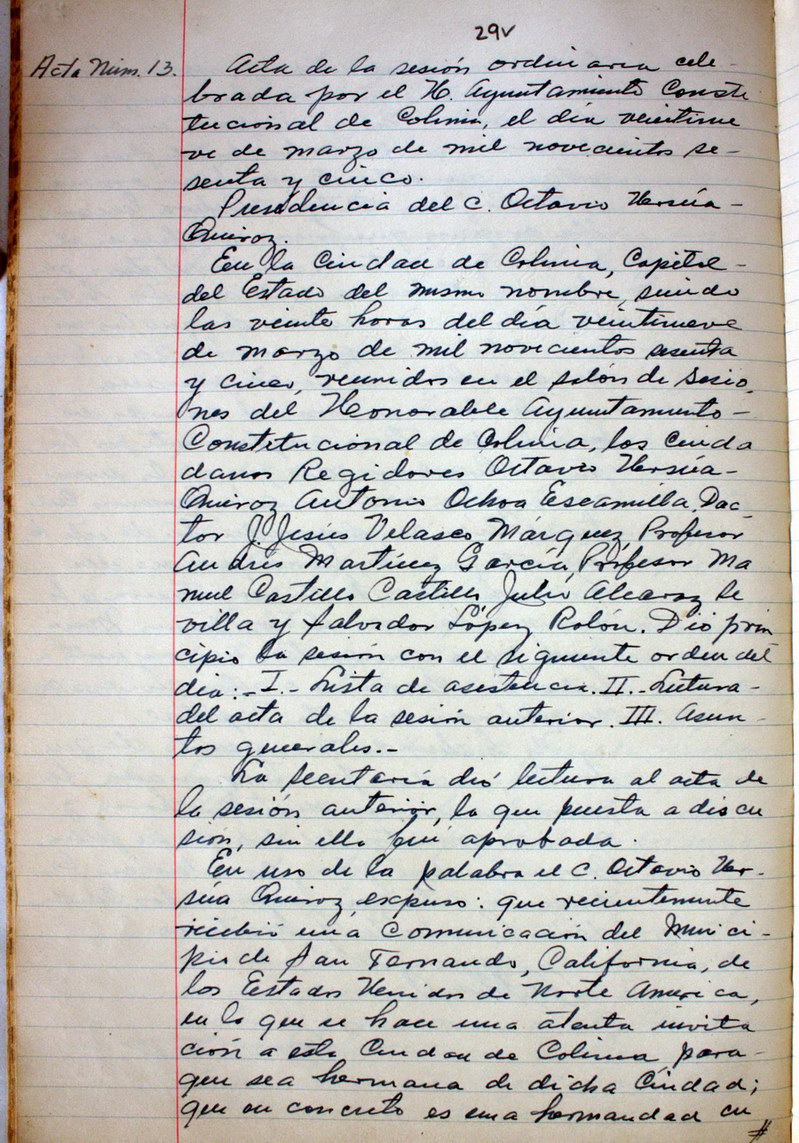 29v
Acta Núm. 13.
Acta de la sesión ordinaria cele-
brada por el H. Ayuntamiento Consti
tucional de Colima, el día veintinue
ve de marzo de mil novecientos se-
senta y cinco.
Presidencia del C. Octavio Ursúa-
Quiroz.
En la Ciudad de Colima, Capital-
del Estado del mismo nombre, siendo
las veinte horas del día veintinueve
de marzo de mil novecientos sesenta
y cinco, reunidos en el salón de Sesio
nes del Honorable Ayuntamiento-
Constitucional de Colima, los Ciuda
danos Regidores Octavio Ursúa-
Quiroz Antonio Ochoa Escamilla, Doc-
tor J. Jesús Velasco Márquez Profesor
Andrés Martínez García, Profesor Ma
nuel Castillo Castillo Julio Alcaraz Se
villa y Salvador López Rolón. Dio prin
cipio la sesión con el siguiente orden del
día:- I.- Lista de asistencia. II.- Lectura-
del acta de la sesión anterior. III. Asun-
tos generales.-
La Secretaría dió lectura al acta de
la sesión anterior, la que puesta a discu
sión, sin ella fué aprobada.
En uso de la palabra el C. Octavio Ur-
súa Quiroz, expuso: que recientemente
recibió una Comunicación del Munici-
pio de San Fernando, California, de
los Estados Unidos de Norte America,
en la que se hace una atenta invita
ción a esta Ciudad de Colima para-
que sea hermana de dicha Ciudad;
que en concreto es una hermandad cu
#